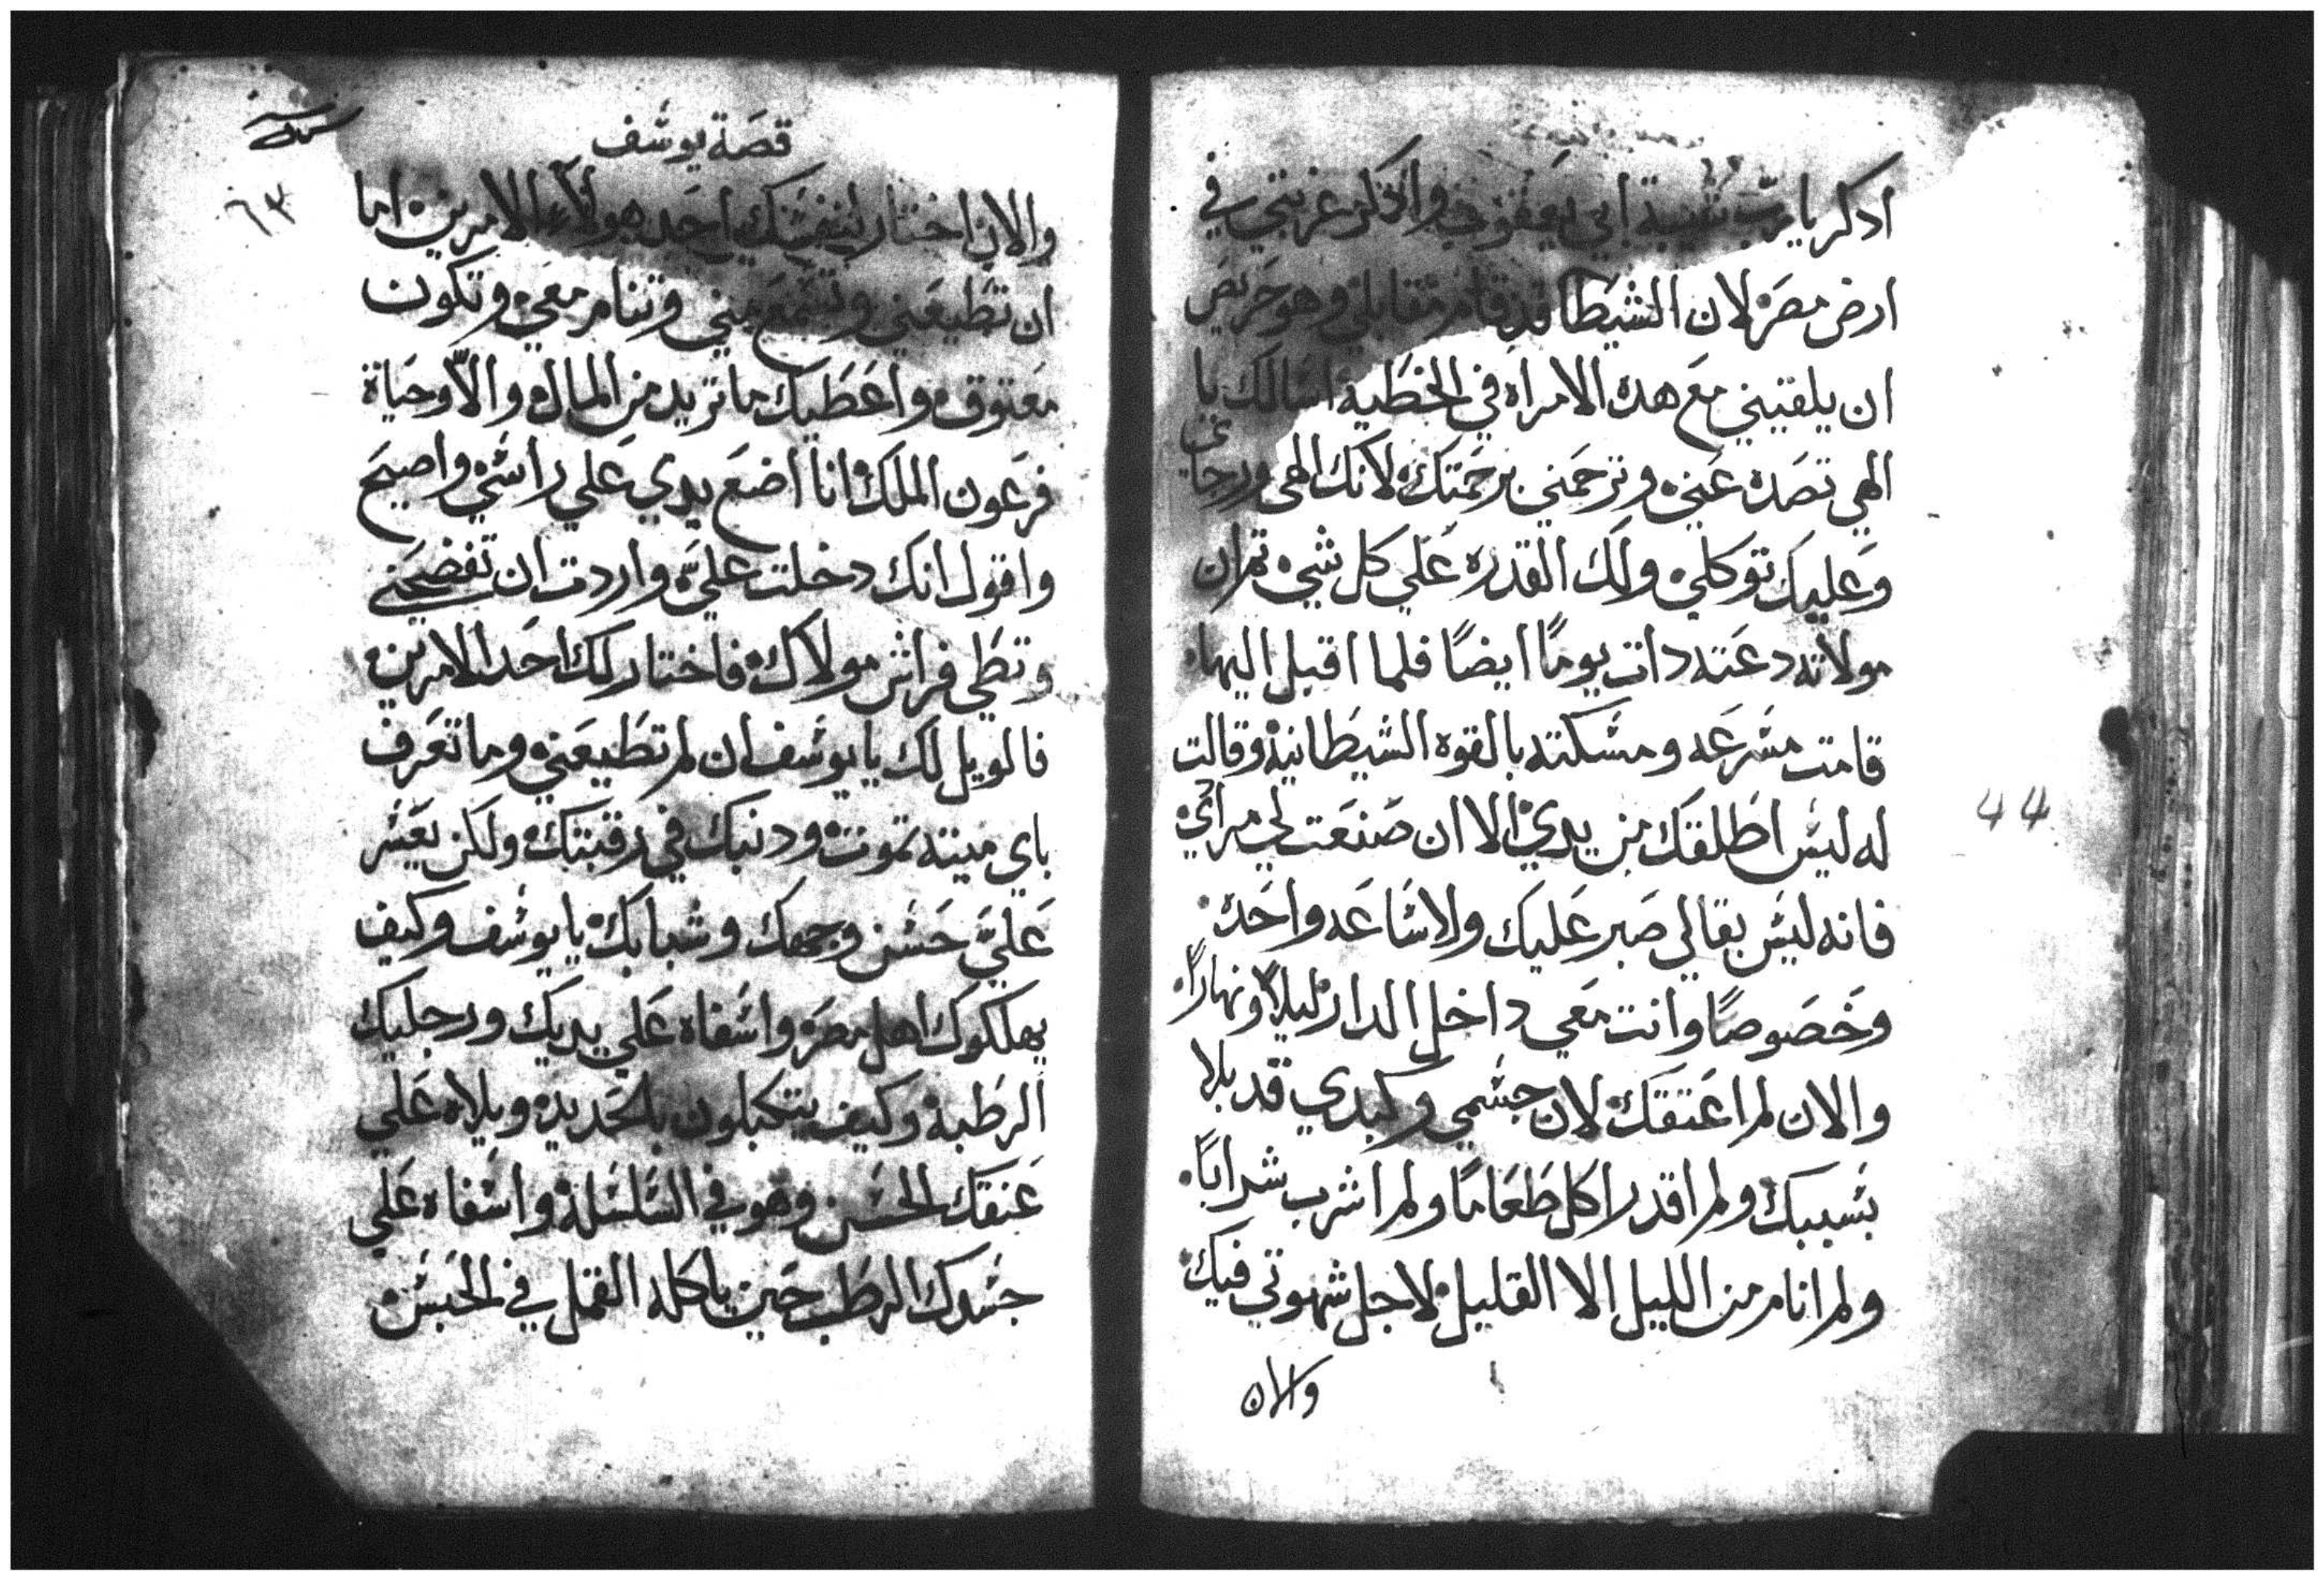 ادكر يا رب شيبة ابي يعقوب واذكر غربتي في
ارض مصر لان الشيطا قد قام مقابلي وهو حريص
ان يلقيني مع هده الامراه في الخطيه اسالك يا
الهي تصده عني وترحمني برحمتك لانك الهي ورجاي
وعليك توكلي ولك القدره علي كل شي تم ان
مولاته دعته دات يوماً ايضاً فلما اقبل اليها
قامت مسرعه ومسكته بالقوه الشيطانية وقالت
له ليس اطلقك من يدي الا ان صنعت لي مرائي
فانه ليس بقا لي صبر عليك ولا ساعه واحده
وخصوصاً وانت معي داخل الدار ليلاً ونهاراً
والان لم اعتقك لان جسمي وكبدي قد بلا
بسببك ولم اقدر اكل طعاما ولم اشرب شراباً
ولم انام من الليل الا القليل لاجل شهوتي فيك
والان
44
قصة يوسف
٦٣
والان اختار لنفسك احد هولاء الامرين اما
ان تطيعني وتسمع مني وتنام معي وتكون
معتوق واعطيك ما تريد من المال والاّ وحياة
فرعون الملك انا اضع يدي علي راسي واصيح
واقول انك دخلت عليَّ واردت ان تفضحني
وتطي فراش مولاك فاختار لك احد الامرين
فالويل لك يا يوسف ان لم تطيعني وما تعرف
باي ميته تموت ودنبك في رقبتك ولكن يعسر
عليَّ حسن وجهك وشبابك يا يوسف وكيف
يهلكوك اهل مصر واسفاه علي يديك ورجليك
الرطبة وكيف يتكبلون بالحديد ويلاه علي
عنقك الحسن وهو في السلسلة واسفاه علي
جسدك الرطب حين ياكله القمل في الحبس